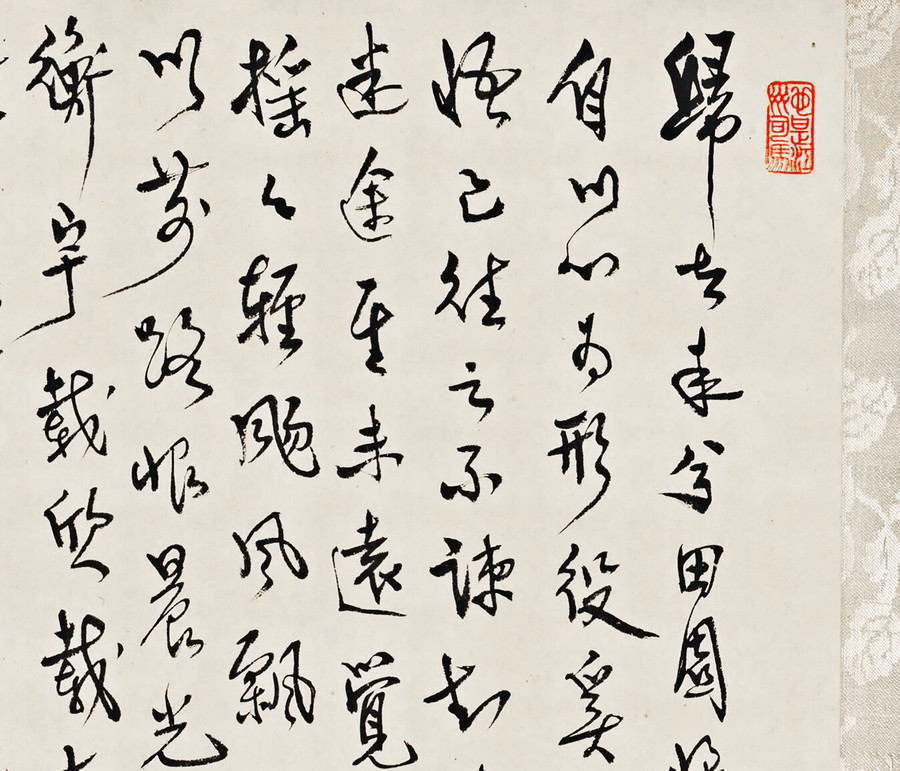 歸去来兮田園
自以心為形役奚
悟已往之不諫知
迷途其未遠覺
搖々輕颺風飄
以前路恨晨光
衡宇載欣載